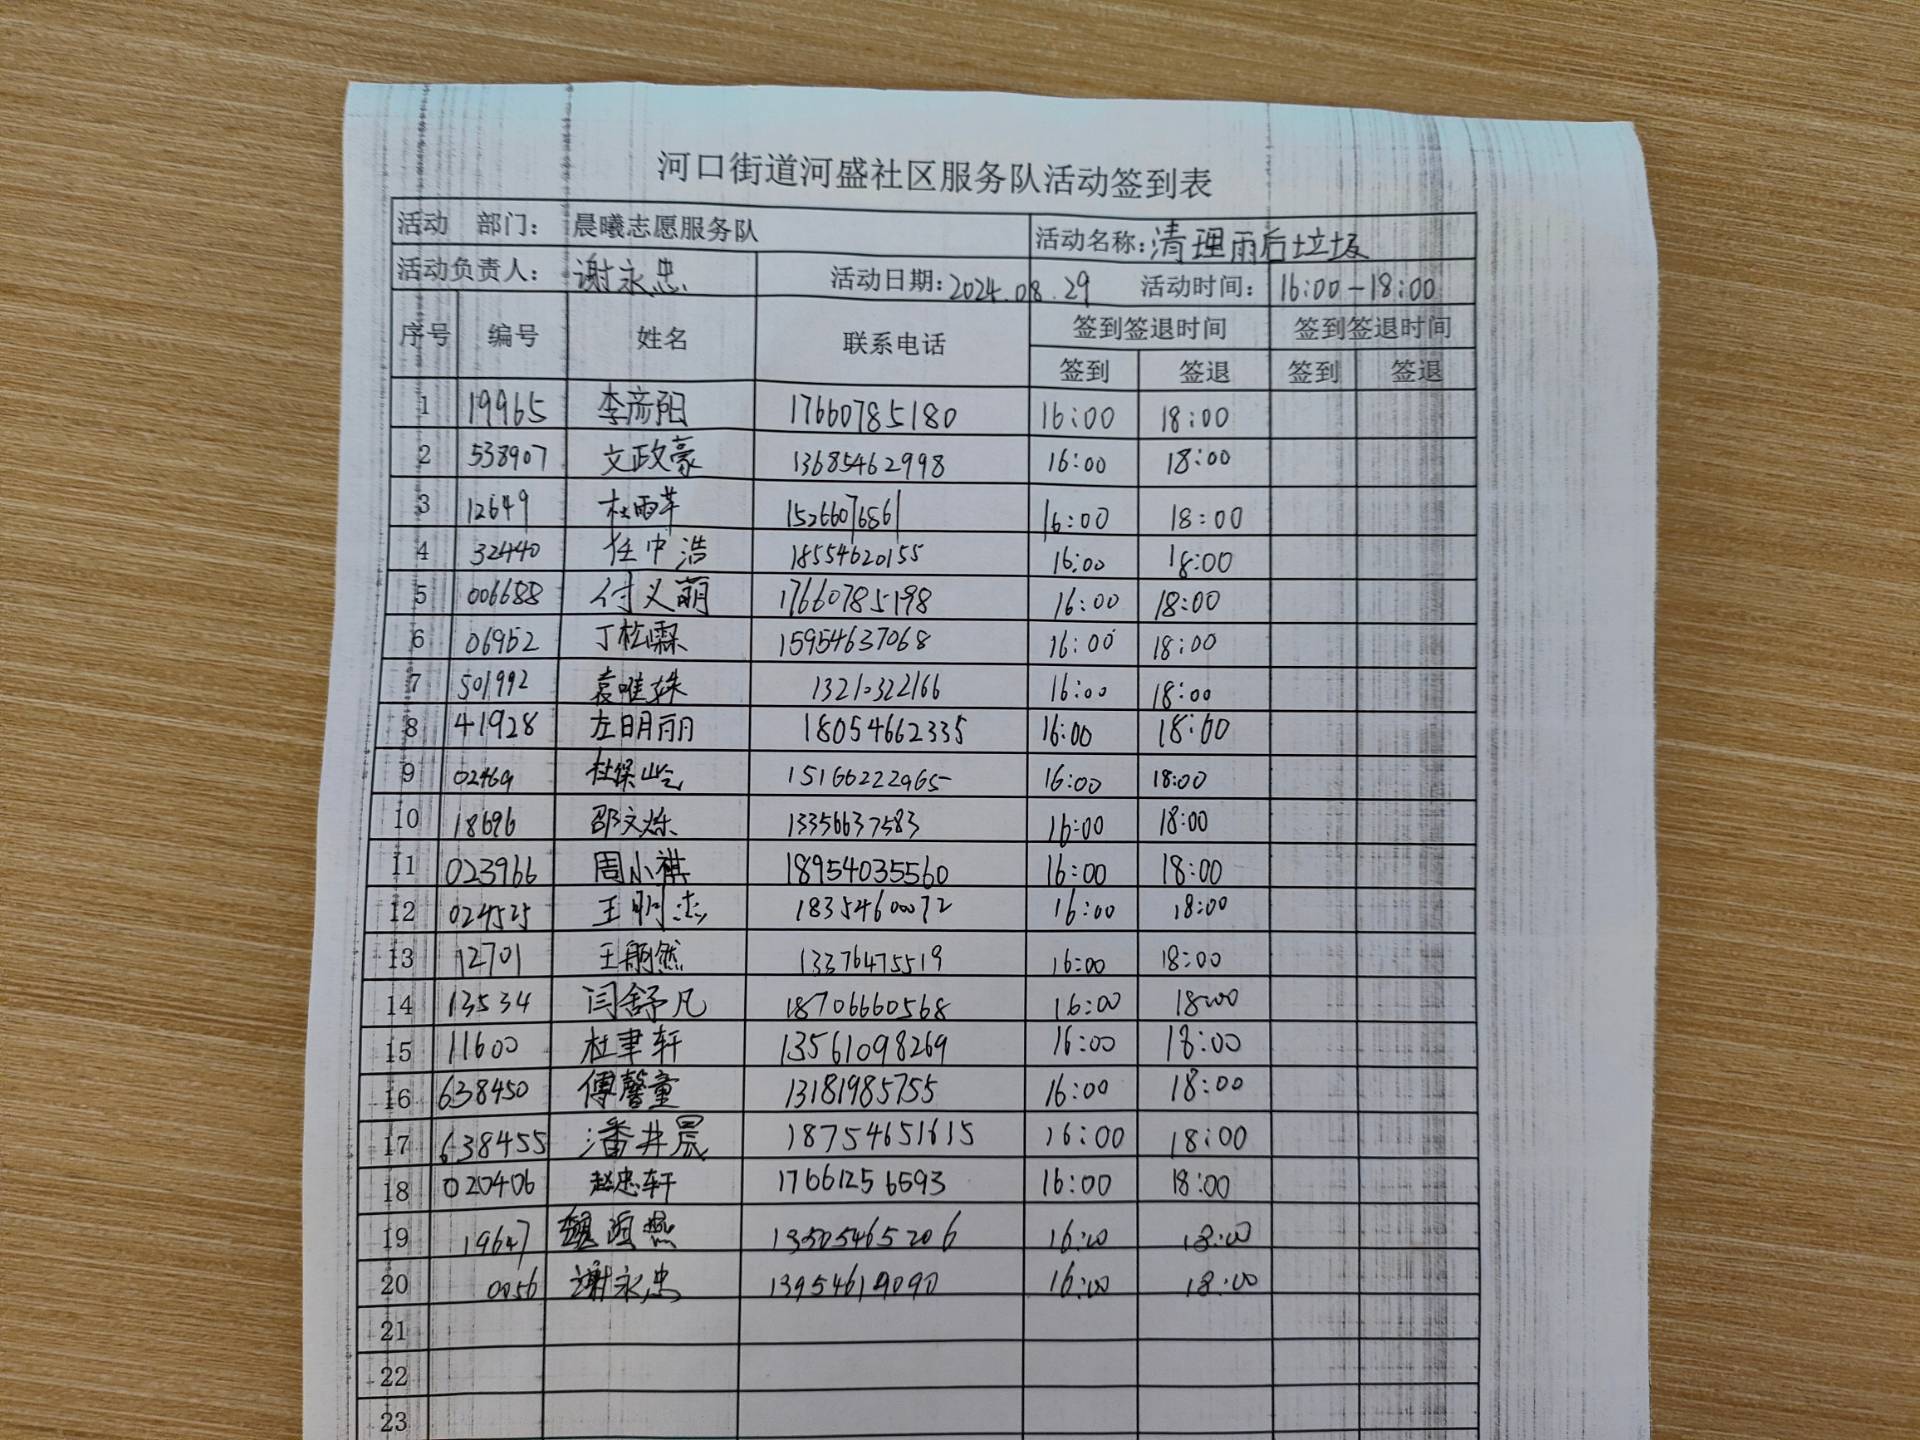 河口街道河盛社区服务队活动签到表
活动 部门： 晨曦志愿服务队 活动名称：清理雨后垃圾
活动负责人： 谢永忠 活动日期：2024.08.29 活动时间： 16:00-18:00
序号 编号 姓名 联系电话 签到签退时间 签到签退时间
签到 签退 签到 签退
1 19965 李彦阳 17660785180 16:00 18:00
2 538907 文政豪 13685462998 16:00 18:00
3 12649 杜雨芊 15266071686 16:00 18:00
4 32440 任中浩 18554620155 16:00 18:00
5 006688 付义萌 17660785198 16:00 18:00
6 06952 丁松霖 15954637068 16:00 18:00
7 501992 袁唯姝 13210322166 16:00 18:00
8 41928 左明丽 18054662335 16:00 18:00
9 02469 杜保屹 15166222965 16:00 18:00
10 18696 邵文烁 13356637583 16:00 18:00
11 023966 周小祺 18954035560 16:00 18:00
12 024525 王明杰 18354600072 16:00 18:00
13 12701 王舸然 13376475519 16:00 18:00
14 13534 闫舒凡 18706660568 16:00 18:00
15 11600 杜聿轩 13561098269 16:00 18:00
16 638450 傅馨童 13181985755 16:00 18:00
17 638455 潘井晨 18754651615 16:00 18:00
18 020406 赵忠轩 17661256593 16:00 18:00
19 19647 魏 燕 13505465206 16:00 18:00
20 0056 谢永忠 13954619090 16:00 18:00
21
22
23